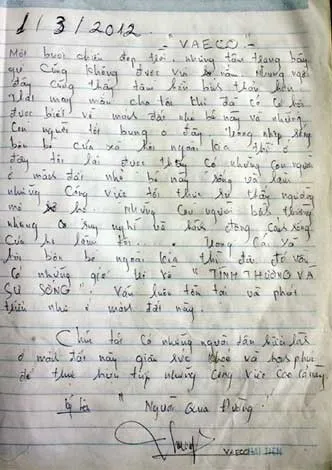 1/3/2012
"VAECO"
Một buổi chiều đẹp trời, những tâm trạng bây
giờ cũng không được vui nằm. nhưng ngồi
đây cũng thấy tâm hồn bớt
Thật may mắn cho tôi khi đã có cơ hội
được biết về mảnh đất nhỏ bé này và những
con người tôi đây trong nhịp sống
bộn bề của xã hội ngoài kia thì ở
đây tôi lại được thấy có những con người
ở mảnh đất nhỏ bé này sống và làm
những công việc tôi thực sự thấy ngưỡng
mộ họ những con người bất thường
nhưng suy nghĩ và hành động, cao sống
của họ làm tôi ..... Trong cái xã
hội bộn bề ngoài kia thì đâu đó vẫn
có những giá trị về "TÌNH THƯƠNG VÀ
SỰ SỐNG" vẫn luôn tồn tại và phát
triển như ở mảnh đất này.
Chúc tất cả những người
ở mảnh đất này giàu sức khỏe và hạnh phúc
để thực hiện tiếp những công việc cao cả này.
ký tên
"Người Qua Đường"
VAECO